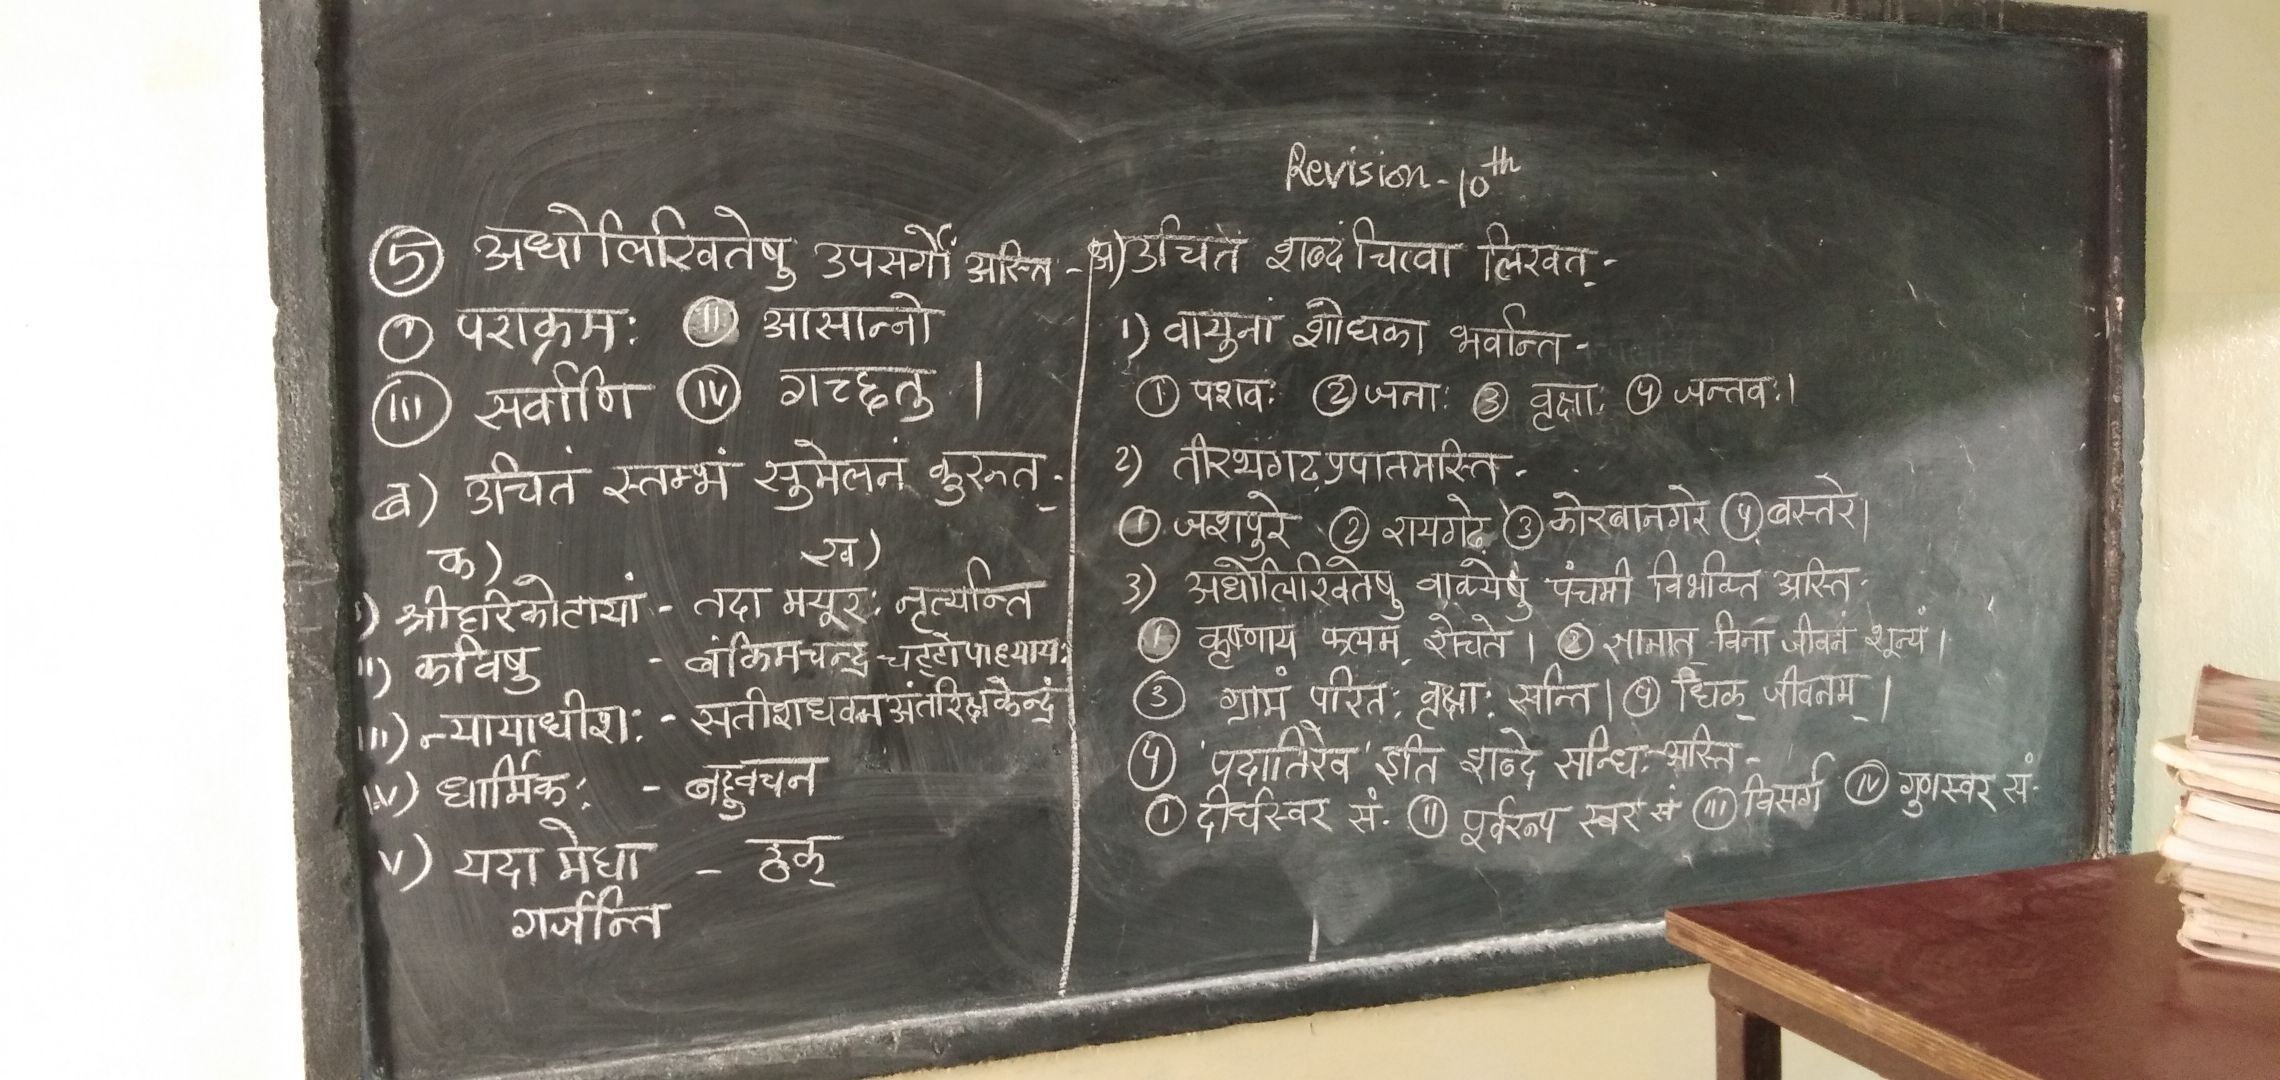 Revision - 10th
अ) उचितं शब्दं चित्वा लिखत् -
१) वायुनां शोधका भवन्ति -
① पशवः ② जनाः ③ वृक्षाः ④ जन्तवः।
२) तीरथगढ़ प्रपातमस्ति -
① जशपुरे ② रायगढ़े ③ कोरबानगरे ④ बस्तरे।
३) अधोलिखितेषु वाक्येषु पंचमी विभक्ति अस्ति -
① कृष्णाय फलम् रोचते। ② विना जीवनं शून्यं।
③ ग्रामं परितः वृक्षाः सन्ति। ④ धिक् जीवनम्।
④ 'पदातिरेव' इति शब्दे सन्धिः अस्ति -
① दीर्घस्वर सं. ⅱ पूर्वरूप स्वर सं ⅲ विसर्ग ⅳ गुणस्वर सं.
⑤ अधोलिखितेषु उपसर्गो अस्ति -
① पराक्रमः ⅱ आसान्नो
ⅲ सर्वाणि ⅳ गच्छतु।
ब) उचितं स्तम्भं सुमेलनं कुरुत् -
क) ख)
i) श्रीहरिकोटायां - तदा मयूरः नृत्यन्ति
ii) कविषु - बंकिमचन्द्र चट्टोपाध्यायः
iii) न्यायाधीशः - सतीशधवन अंतरिक्ष केन्द्रं
iv) धार्मिकः - बहुवचन
v) यदा मेघा - ठक्
गर्जन्ति